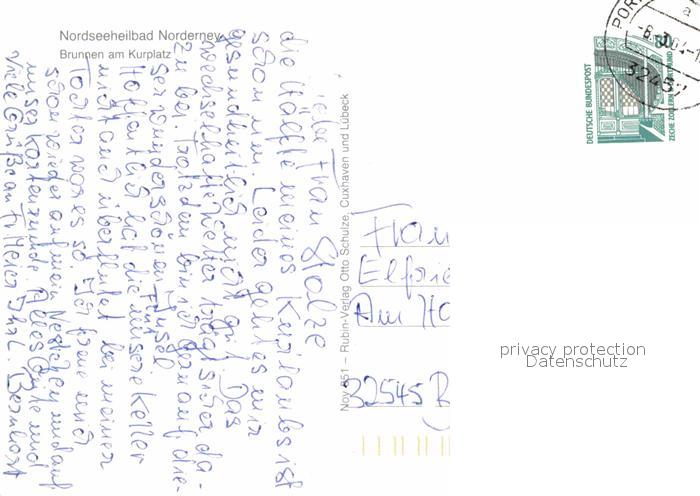 Nordseeheilbad Norderney
Brunnen am Kurplatz
Liebe Frau Stolze
die Hälfte meines Kurlaubs ist
schon um. Leider geht es mir
gesundheitlich nicht gut. Das
wechselhafte Wetter trägt sicher da-
zu bei. Trotzdem bin ich gern auf die-
ser wunderschönen Insel
Hoffentlich hat die Flut unsere Keller
nicht auch überflutet bei meiner
Tochter war es so. Ich freue mich
schon wieder auf mein und auf
unser Kartenrunde Alles Gute und
Viele Grüße an Fr. Meier Ihr L.
Nov 851 – Rubin-Verlag Otto Schulze, Cuxhaven und Lübeck
Frau
Elfrie
Am Ho
32545 B
DEUTSCHE BUNDESPOST
80
32457
privacy protection
Datenschutz